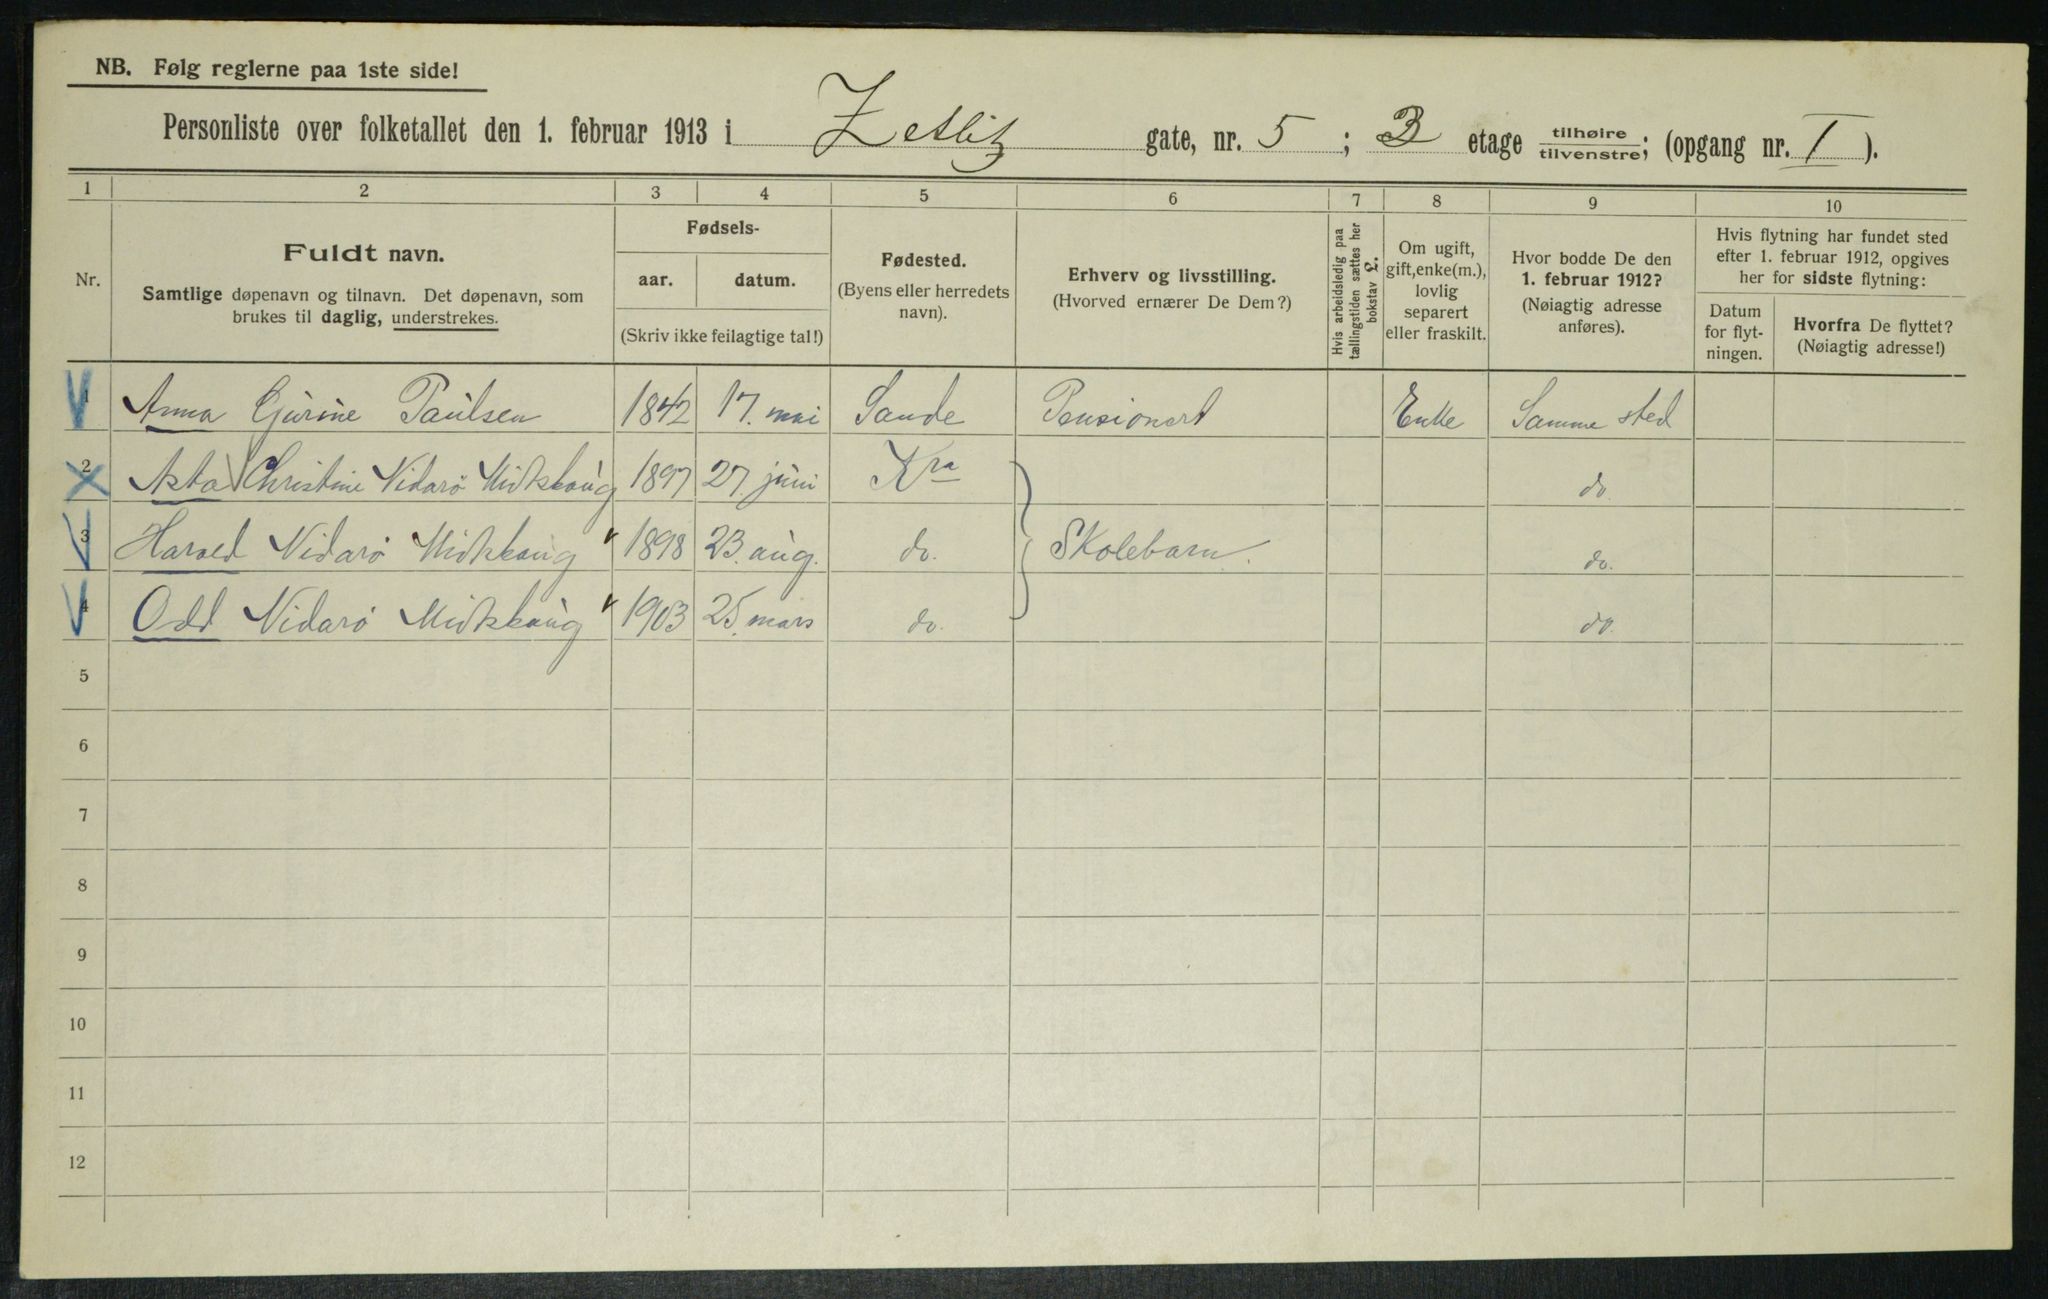 NB. Følg reglerne paa 1ste side!
Personliste over folketallet den 1. februar 1913 i Zetlitz gate, nr. 5; 3 etage tilhøire tilvenstre; (opgang nr. I).
1 2 3 4 5 6 7 8 9 10
Nr.
Fuldt navn.
Samtlige døpenavn og tilnavn. Det døpenavn, som
brukes til daglig, understrekes.
Fødsels-
aar. datum.
(Skriv ikke feilagtige tal!)
Fødested.
(Byens eller herredets
navn).
Erhverv og livsstilling.
(Hvorved ernærer De Dem?)
Hvis arbeidsledig paa
tællingstiden sættes her
bokstav L.
Om ugift,
gift, enke(m.),
lovlig
separert
eller fraskilt.
Hvor bodde De den
1. februar 1912?
(Nøiagtig adresse
anføres).
Hvis flytning har fundet sted
efter 1. februar 1912, opgives
her for sidste flytning:
Datum
for flyt-
ningen.
Hvorfra De flyttet?
(Nøiagtig adresse!)
1 Anna Gurine Paulsen 1842 17. mai Sande Pensionert Enke Samme sted
2 Asta Christine Nidarö 1897 27. juni Kra do.
3 Harald Nidarö 1898 23. aug. do. Skolebarn. do.
4 Odd Nidarö 1903 25. mars do. do.
5
6
7
8
9
10
11
12